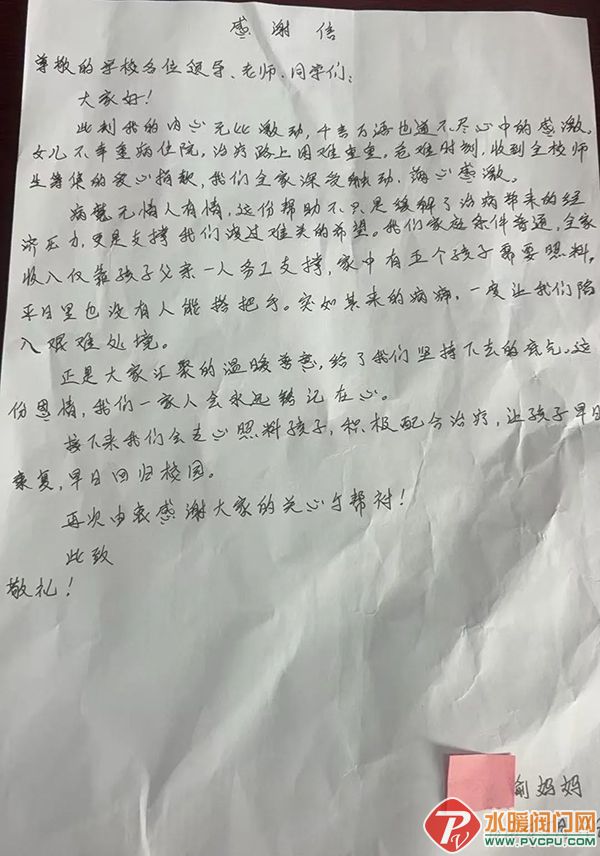 感谢信
尊敬的学校各位领导、老师、同学们：
大家好！
此刻我的内心无比激动，千言万语也道不尽心中的感激。
女儿不幸重病住院，治疗路上困难重重。危难时刻，收到全校师
生筹集的爱心捐款，我们全家深受触动，满心感激。
病魔无情人有情，这份帮助不只是缓解了治病带来的经
济压力，更是支撑我们渡过难关的希望。我们家庭条件普通，全家
收入仅靠孩子父亲一人务工支撑，家中有五个孩子需要照料，
平日里也没有人能搭把手。突如其来的病痛，一度让我们陷
入艰难处境。
正是大家汇聚的温暖善意，给了我们坚持下去的底气。这
份恩情，我们一家人会永远铭记在心。
接下来我们会专心照料孩子，积极配合治疗，让孩子早日
康复，早日回归校园。
再次由衷感谢大家的关心与帮衬！
此致
敬礼！
俞妈妈
水暖阀门网
WWW.PVCPU.COM